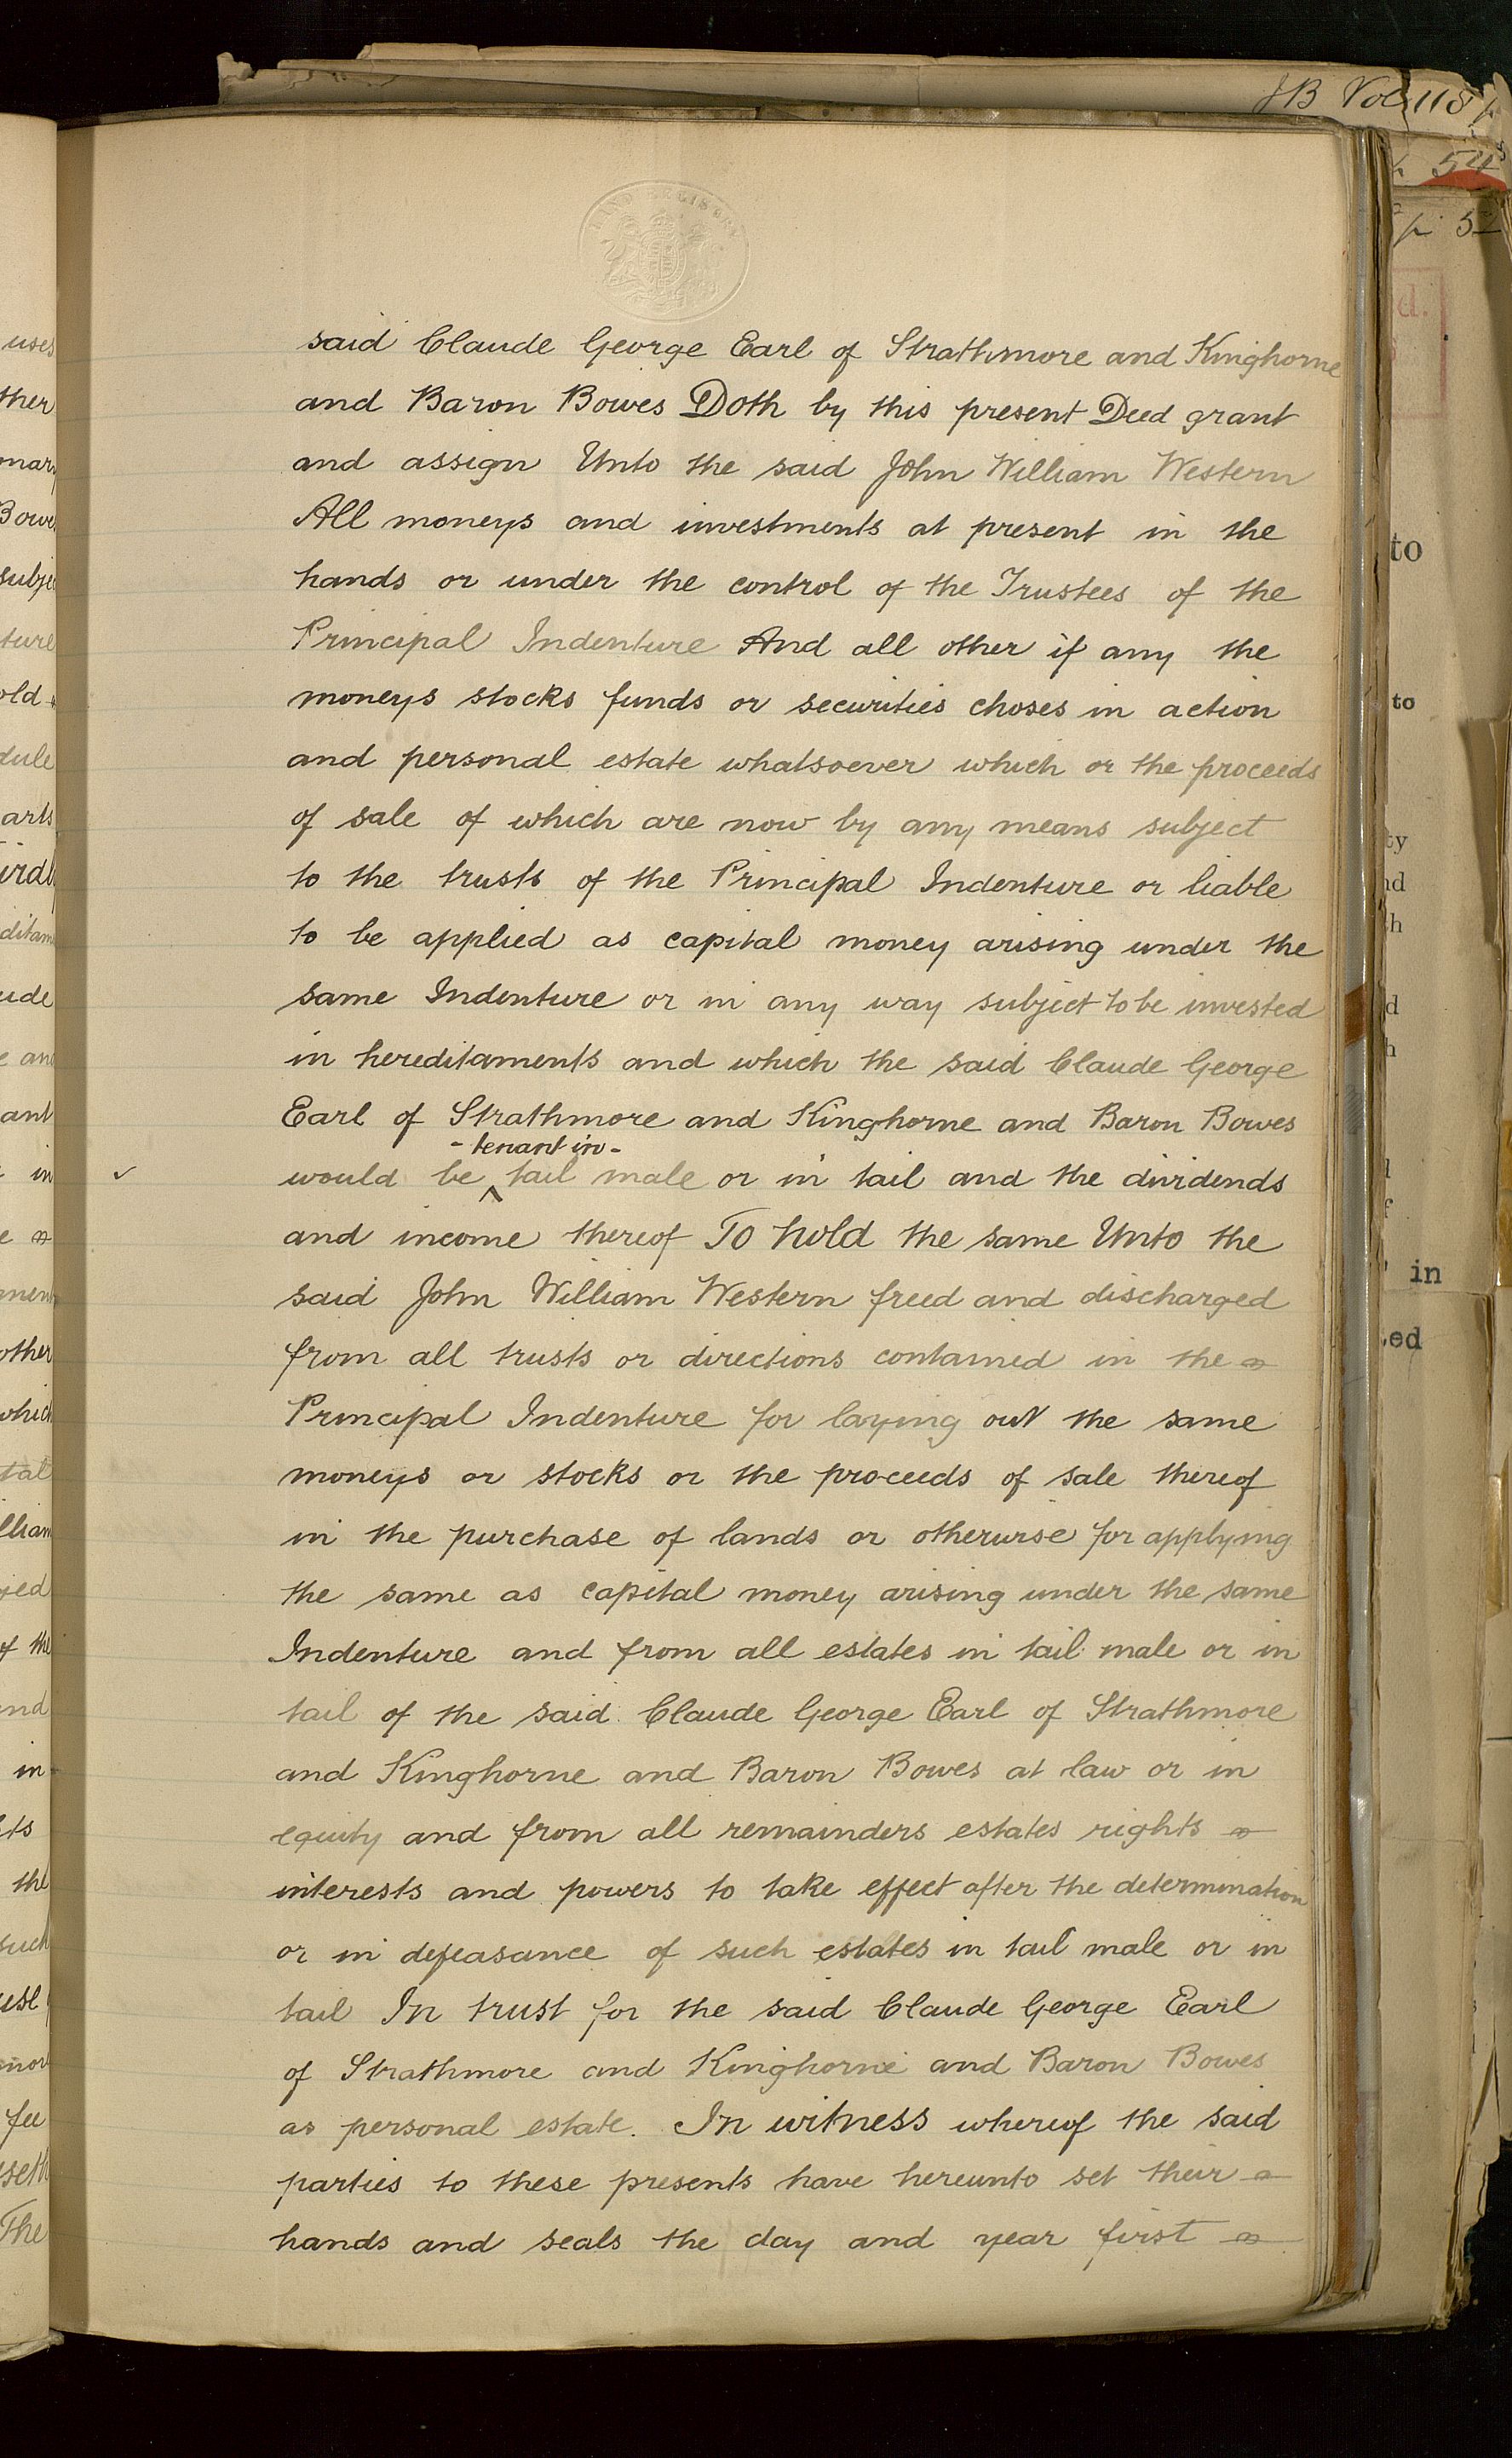 JB Vol 118
54
said Claude George Earl of Strathmore and Kinghorne
and Baron Bowes Doth by this present Deed grant
and assign Unto the said John William Western
All moneys and investments at present in the
hands or under the control of the Trustees of the
Principal Indenture And all other if any the
moneys stocks funds or securities choses in action
and personal estate whatsoever which or the proceeds
of sale of which are now by any means subject
to the trusts of the Principal Indenture or liable
to be applied as capital money arising under the
same Indenture or in any way subject to be invested
in hereditaments and which the said Claude George
Earl of Strathmore and Kinghorne and Baron Bowes
- tenant in -
would be ^ tail male or in tail and the dividends
and income thereof To hold the same Unto the
said John William Western freed and discharged
from all trusts or directions contained in the
Principal Indenture for laying out the same
moneys or stocks or the proceeds of sale thereof
in the purchase of lands or otherwise for applying
the same as capital money arising under the same
Indenture and from all estates in tail male or in
tail of the said Claude George Earl of Strathmore
and Kinghorne and Baron Bowes at law or in
equity and from all remainders estates rights
interests and powers to take effect after the determination
or in defeasance of such estates in tail male or in
tail In trust for the said Claude George Earl
of Strathmore and Kinghorne and Baron Bowes
as personal estate. In witness whereof the said
parties to these presents have hereunto set their
hands and seals the day and year first